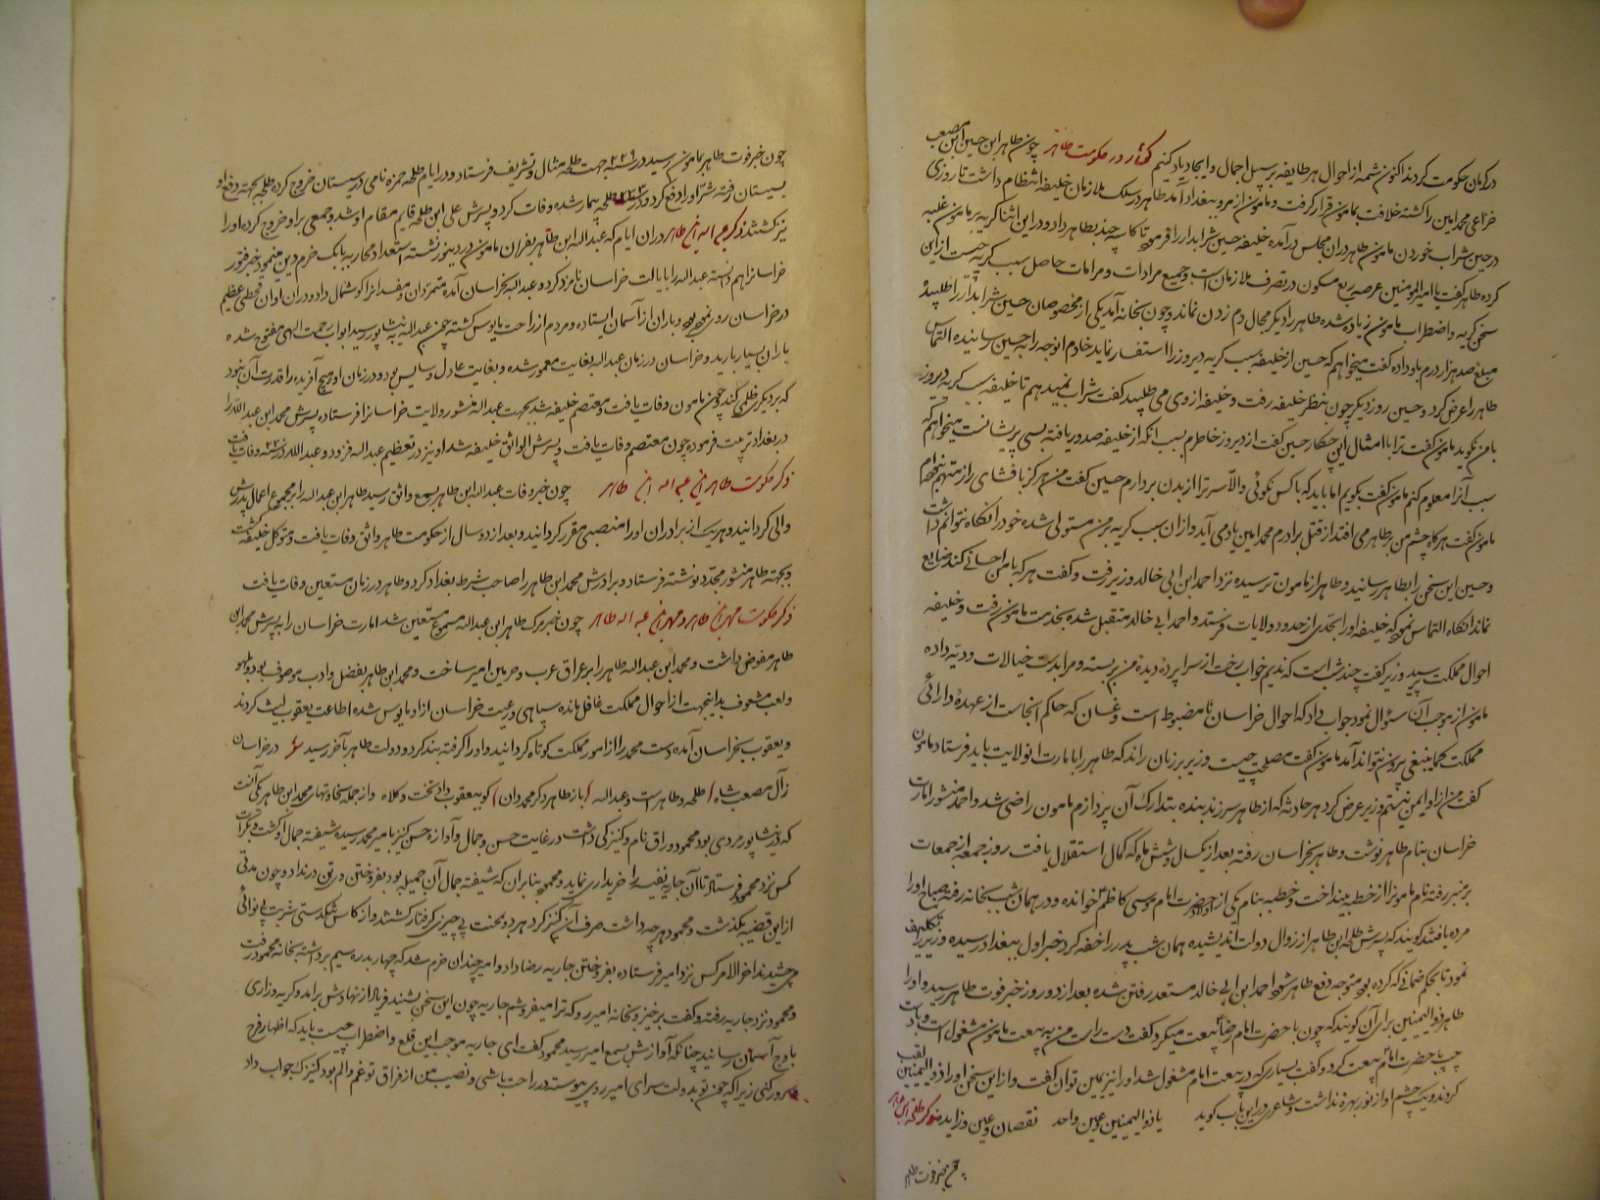 در کرمان حکومت کردند اکنون شمه از احوال هر طایفه بر سبیل اجمال و ایجاد یاد کنیم گفتار در حکومت طاهر چون طاهر ابن حسین ابن مصعب
خزاعی محمد امین را کشته خلافت بمامون قرار گرفت و مامون از مرو ببغداد آمد طاهر در سلک ملازمان خلیفه انتظام داشت تا روزی
در حین شراب خوردن مامون طاهر دران مجلس درآمده خلیفه حسین شرابدار را فرمود تا کاسه چند بطاهر داد و در این اثنا گریه بر مامون غلبه
کرده طاهر گفت یا امیرالمومنین عرصه ربع مسکون در تصرف ملازمان است و جمیع مرادات و مرامات حاصل سبب گریه چیست از این
سخن گریه و اضطراب مامون زیاده شده طاهر را دیگر مجال دم زدن نماند و چون بخانه آمد یکی از مخصوصان حسین شرابدار را طلبیده
مبلغ صد هزار درم باو داده گفت میخواهم که حسین از خلیفه سبب گریه دیروز را استفسار نماید خادم آنوجه را بحسین رسانیده التماس
طاهر را عرض کرد و حسین روز دیگر چون بنظر خلیفه رفت و خلیفه از وی می طلبید گفت شراب نمیدهم تا خلیفه سبب گریه دیروز
با من نگوید مامون گفت ترا با امثال این چکار حسین گفت از دیروز خاطرم بسبب آنکه از خلیفه صدور یافته بسی پریشانست میخواهم که
سبب آنرا معلوم کنم مامون گفت بگویم اما باید که با کس نگوئی والا سر ترا از بدن بردارم حسین گفت من هرگز بافشای راز متهم نبوده‌ام
مامون گفت هرگاه چشم من بر طاهر می افتد از قتل برادرم محمد امین یادمی آید و ازان سبب گریه بر من مستولی شده خود را نگاه نتوانم داشت
و حسین این سخن را بطاهر رسانید و طاهر از مامون ترسیده نزد احمد ابن ابی خالد وزیر رفت و گفت هر که با من احسانی کند ضایع
نماند آنگاه التماس نمود که خلیفه او را بحدی از حدود ولایات فرستد و احمد ابی خالد متقبل شده بخدمت مامون رفت و خلیفه
احوال مملکت پرسید وزیر گفت چند شب است که ندیم خواب رخت از سراپرده دیده من بربسته و مرا بدست خیالات ردیه داده
مامون از موجب آن سؤال نمود جواب داد که احوال خراسان نامضبوط است و غسان که حاکم آنجاست از عهده دارائی
مملکت کما ینبغی بیرون نتواند آمد مامون گفت مصلحت چیست وزیر بر زبان راند که طاهر را بامارت آنولایت باید فرستاد مامون
گفت من از او ایمن نیستم وزیر عرض کرد هر حادثه که از طاهر سر زند بنده بتدارک آن پردازم مامون راضی شد و احمد منشور امارت
خراسان بنام طاهر نوشت و طاهر بخراسان رفته بعد از یکسال و شش ماه که کمال استقلال یافت روز جمعه از جمعات
بر منبر رفته نام مامون را از خطبه بینداخت و خطبه بنام یکی از اولاد حضرت امام موسی کاظم خوانده و در همان شب بخانه رفته صباح او را
مرده یافتند گویند که پسرش طلحه ابن طاهر از زوال دولت اندیشیده همان شب پدر را خفه کرد خبر اول ببغداد رسیده وزیر را تکلیف
نمود تا بحکم ضمانی که کرده بود متوجه دفع طاهر شود احمد ابن ابی خالد مستعد رفتن شده بعد از دو روز خبر فوت طاهر رسید و او را
طاهر ذوالیمینین برای آن گویند که چون با حضرت امام رضا بیعت میکرد گفت دست راست من به بیعت مامون مشغول است و با دست
چپ با حضرت امام بیعت کرد و گفت یساری که در بیعت امام مشغول شد او را نیز یمین توان گفت و از این سخن او را ذوالیمینین لقب
کردند و یک چشم او از نور بهره نداشت و شاعری در این باب گوید یا ذوالیمینین و عین واحد نقصان و عین و زایده ذکر طلحه ابن طاهر
چون خبر فوت طاهر
چون خبر فوت طاهر بمامون رسید در سنه ۲۲۹ جهت طلحه مثال و تشریف فرستاد و در ایام طلحه حمزه نامی در سیستان خروج کرده طلحه بجهته دفع او
بسیستان رفته شر او را دفع کرد و در ۲۲۳ طلحه بیمار شده وفات کرد و پسرش علی ابن طلحه قایم مقام او شد و جمعی بر او خروج کرده او را
نیز کشتند ذکر عبد الله ابن طاهر دران ایام که عبدالله ابن طاهر بفرمان مامون در دینور نشسته استعداد محاربه بابک خرم دین مینمود خبر فتور
خراسان را هم دانسته عبدالله را بایالت خراسان نامزد کرد و عبدالله بخراسان آمده متمردان و مفسدانرا گوشمال داد و دران اوان قحطی عظیم
در خراسان روی نموده بود و باران از آسمان ایستاده و مردم از راحت مایوس گشته چون عبدالله بنشاپور رسید ابواب رحمت الهی مفتوح شده
باران بسیار بارید و خراسان در زمان عبدالله بغایت معمور شده و بغایت عادل و سایس بود و در زمان او هیچ آفریده را قدرت آن نبود
که بر دیگری ظلمی کند و چون مامون وفات یافت و معتصم خلیفه شد بجهت عبدالله منشور ولایت خراسانرا فرستاده پسرش محمد ابن عبدالله را
در بغداد تربیت فرموده چون معتصم وفات یافت و پسرش الواثق خلیفه شد او نیز در تعظیم عبدالله فزود و عبدالله در سنه وفات یافت
ذکر حکومت طاهر ابن عبد الله ابن طاهر چون خبر وفات عبدالله ابن طاهر بسمع واثق رسید طاهر ابن عبدالله را بر مجموع اعمال پدرش
والی گردانید و هر یک از برادران او را منصبی مقرر گردانید و بعد از دو سال از حکومت طاهر واثق وفات یافت و متوکل خلیفه گشت
و بجهته طاهر منشور مجدد نوشته فرستاد و برادرش محمد ابن طاهر را صاحب شرط بغداد کرد و طاهر در زمان مستعین وفات یافت
ذکر حکومت محمد ابن طاهر و محمد ابن عبد الله طاهر چون خبر مرگ طاهر ابن عبدالله مسموع مستعین شد امارت خراسان را به پسرش محمد ابن
طاهر مفوض داشت و محمد ابن عبدالله طاهر را بر عراق عرب و حرمین امیر ساخت و محمد ابن طاهر بفضل و ادب موصوف بود و بلهو
و لعب مشعوف بدانجهت از احوال مملکت غافل مانده سپاهی و رعیت خراسان از او مایوس شده اطاعت یعقوب لیث کردند
و یعقوب بخراسان آمده دست محمد را از امور مملکت کوتاه گردانید و او را گرفته بند کرد و دولت طاهر بآخر رسید در خراسان
زآل مصعب شاه طلحه و طاهر است و عبدالله باز طاهر دگر محمد دان کو بیعقوب داد تخت و کلاه و از جمله سخاوتهای محمد ابن طاهر یکی آنست
که در نیشاپور مردی بود محمود وراق نام و کنیزکی داشت در غایت حسن و جمال و آوازه حسن کنیز بامیر محمد رسیده شیفته جمال او گشت و بکرات
کس نزد محمود فرستاد تا آن جاریه نفیسه را خریداری نماید و محمود بنابر آن که شیفته جمال آن جمیله بود بفروختن وی تن در نداد و چون مدتی
از این قضیه بگذشت و محمود هر چه داشت صرف آن کنیز کرد هر دو بمحنت بی چیزی گرفتار گشتند و از کاس تنگدستی شربت بی نوائی
می چشیدند آخر الامر کس نزد امیر فرستاده بفروختن جاریه رضا داد و امیر چندان خرم شد که چهار بدره سیم برداشته بخانه محمود رفت
و محمود نزد جاریه رفته و گفت برخیز و بخانه امیر رو که ترا میفروشم جاریه چون این سخن بشنید فریاد از نهادش برآمد و گریه و زاری
باوج آسمان رسانید چنانکه آوازش بسمع امیر رسید محمود گفت ای جاریه موجب این قلع و اضطراب چیست باید که اظهار فرح
و سرور کنی زیرا که چون تو بدولت سرای امیر روی پیوسته در راحت باشی و نصیب من از فراق تو غم و الم بود کنیزک جواب داد